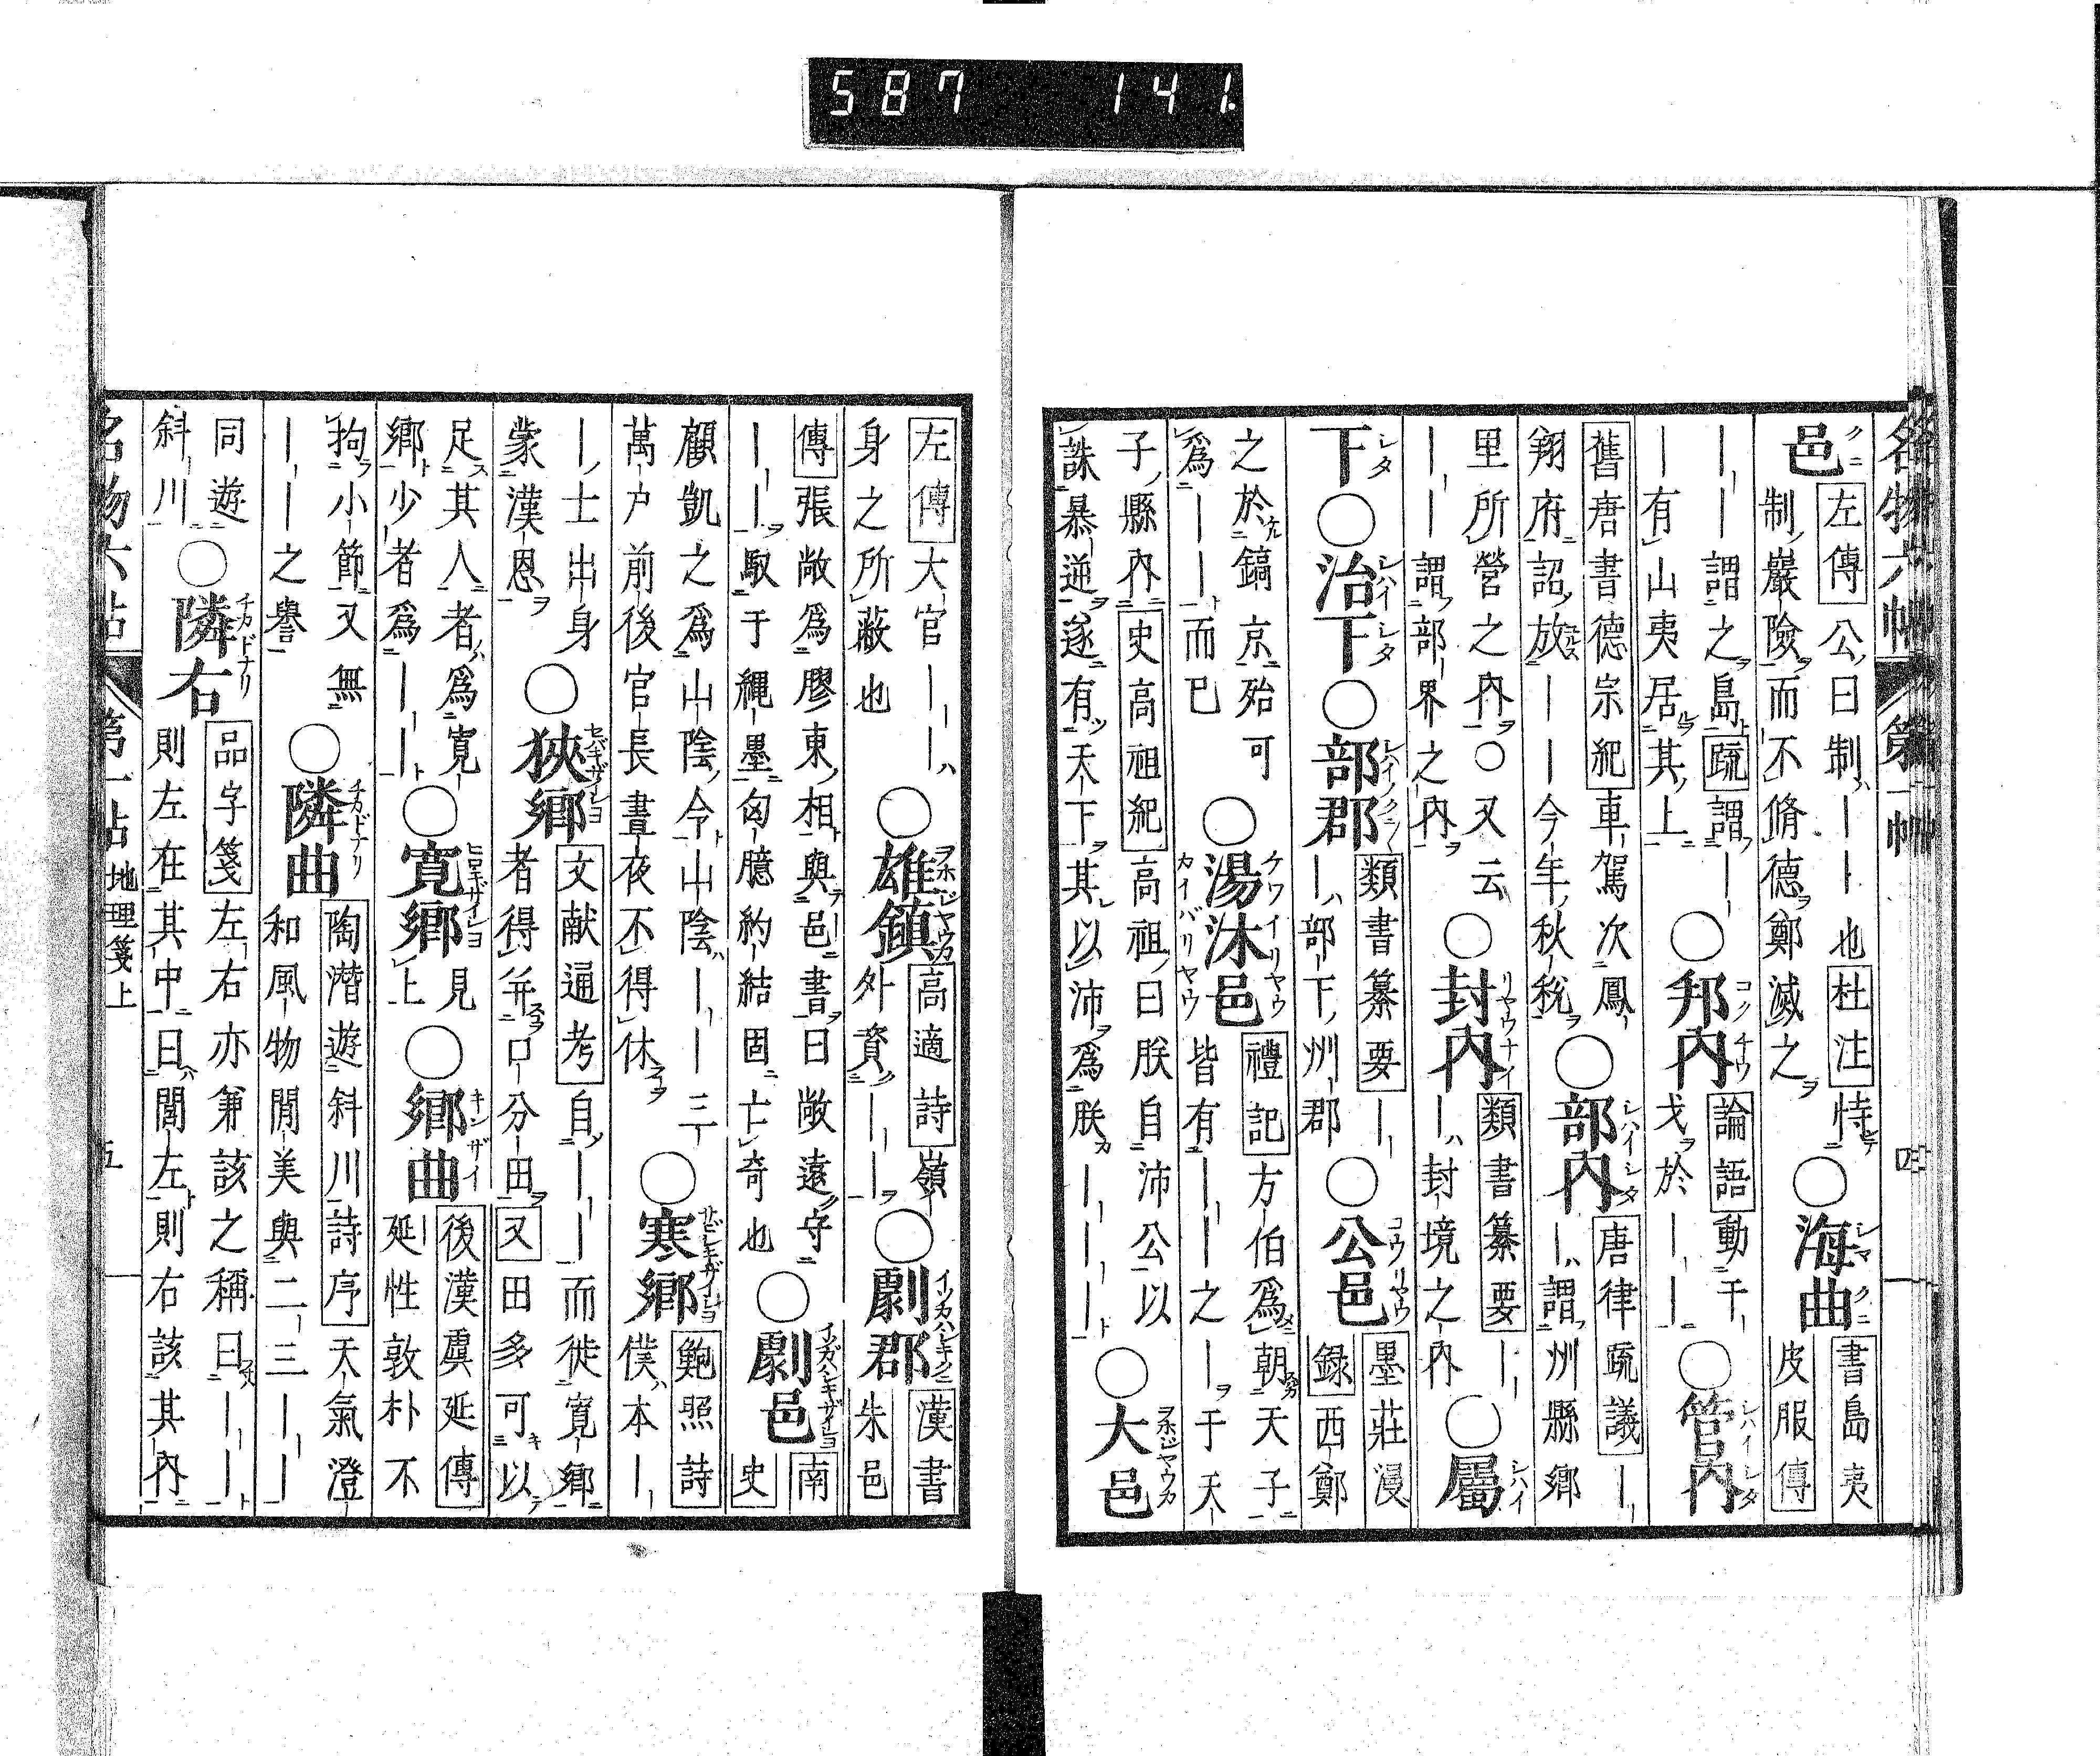 587 141
名物六帖 第一帖 四
邑 左傳 公曰制――也 杜注 恃
制巖險而不脩德鄭滅之 ○海曲 書島夷
皮服傳
――謂之島 疏 謂―
―有山夷居其上 ○邦內 論語 動干
戈於―― ○管內
舊唐書德宗紀 車駕次鳳
翔府詔放――今年秋稅 ○部內 唐律疏議 ―
―謂州縣鄉
里所營之內○又云
――謂部界之內 ○封內 類書纂要 ―
―封境之內 ○屬
下 ○治下 ○部郡 類書纂要 ―
―部下州郡 ○公邑 墨莊漫
録 西鄭
之於鎬京殆可
爲――而已 ○湯沐邑 禮記 方伯爲朝天子
皆有――之―于天
子縣內 史高祖紀 高祖曰朕自沛公以
誅暴逆遂有天下其以沛爲朕――― ○大邑
左傳 大官――
身之所蔽也 ○雄鎮 高適詩 嶺
外資―― ○劇郡 漢書
朱邑
傳 張敞爲膠東相與邑書曰敞遠守
――馭于繩墨匈臆約結固亡奇也 ○劇邑 南
史
顧凱之爲山陰今山陰――三
萬户前後官長晝夜不得休 ○寒鄉 鮑照詩
僕本―
―士出身
蒙漢恩 ○狹鄉 文献通考 自――而徙寬鄉
者得并口分田 又 田多可以
足其人者爲寬
鄉少者爲―― ○寬鄉 見
上 ○鄉曲 後漢虞延傳
延性敦朴不
拘小節又無
――之譽 ○隣曲 陶潜遊斜川詩序 天氣澄
和風物閒美與二三――
同遊
斜川 ○隣右 品字箋 左右亦兼該之稱曰――
則左在其中曰閭左則右該其內
名物六帖 第一帖 地理箋上 五